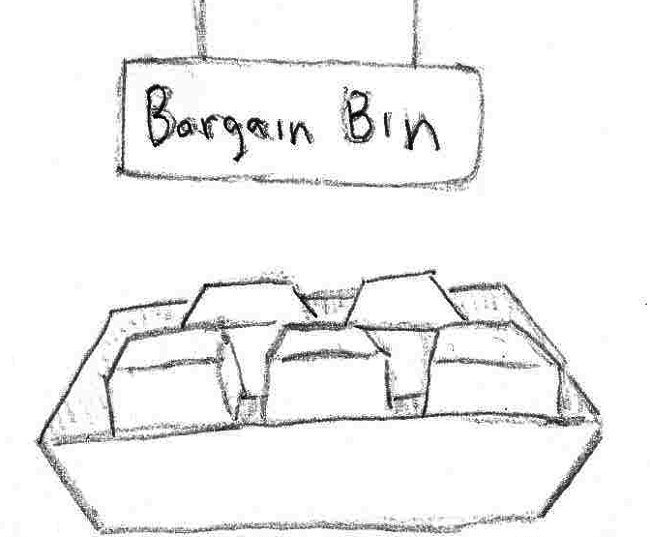 Bargain Bin